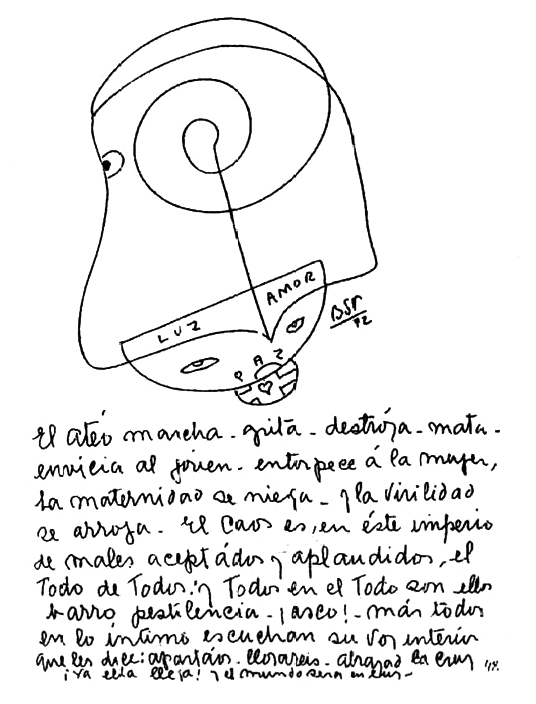 LUZ
AMOR
PAZ
BSP
72
El atéo marcha - grita - destróza - mata -
envicia al jóven - entorpece á la mujer,
La maternidad se niega - y la virilidad
se arroja - El Caos es, en éste imperio
de males aceptádos y aplaudidos, el
Todo de Todos! y Todos en el Todo son ellos
barro pestilencia - ¡asco! - más todos
en lo íntimo escuchan su voz interior
que les dice: apartáos - lloraréis - abrazad la Cruz
¡Ya ella llega! y el mundo será en luz -